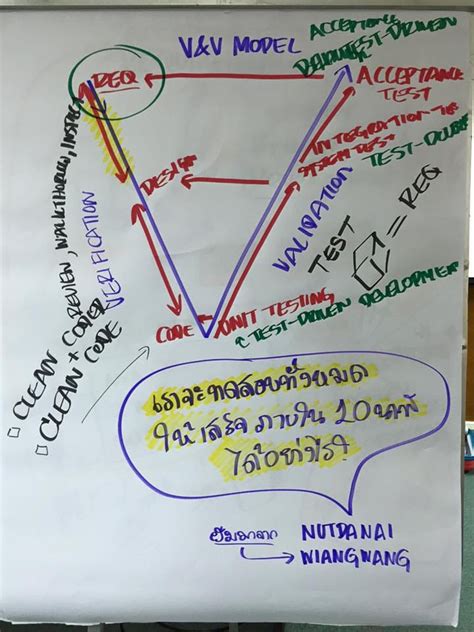 V&V MODEL
ACCEPTANCE
TEST-DRIVEN
REQ
ACCEPTANCE
TEST
INTEGRATION
TEST-DOUBLE
DESIGN
VALIDATION
TEST
= REQ
REVIEW, WALKTHROUGH, INSPECT
VERIFICATION
CLEAN + CODER
CLEAN CODE
CODE
UNIT TESTING
TEST-DRIVEN DEVELOPMENT
เราจะทดสอบทั้งหมด
ให้เสร็จ ภายใน 10 นาที
ได้อย่างไร?
ยืมมาจาก
NUTDANAI
WIANGWANG